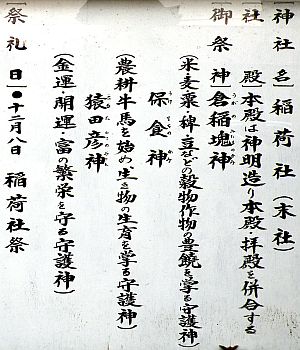 [神社名]稲荷社(末社)
[社殿]本殿は神明造り本殿・拝殿を併合する
[御祭神]倉稲魂神
(米麦粟稗豆などの穀物作物の豊饒を掌る守護神)
保食神
(農耕牛馬を始め、生き物の生育を掌る守護神)
猿田彦神
(金運・開運・富の繁栄を守る守護神)
[祭礼日]●十二月八日 稲荷社祭